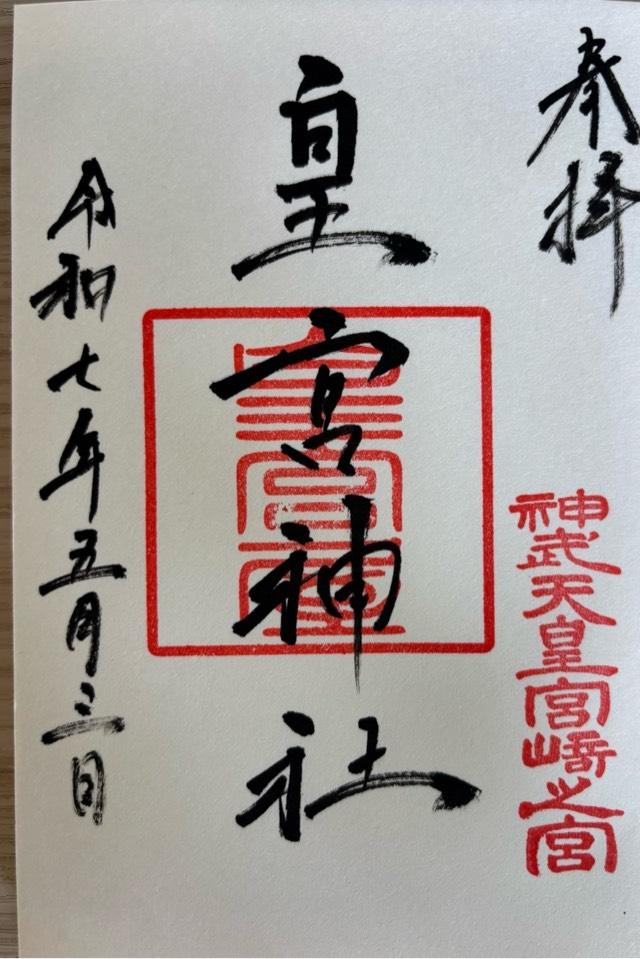 奉拝
神武天皇宮崎之宮
皇宮神社
令和七年五月三日